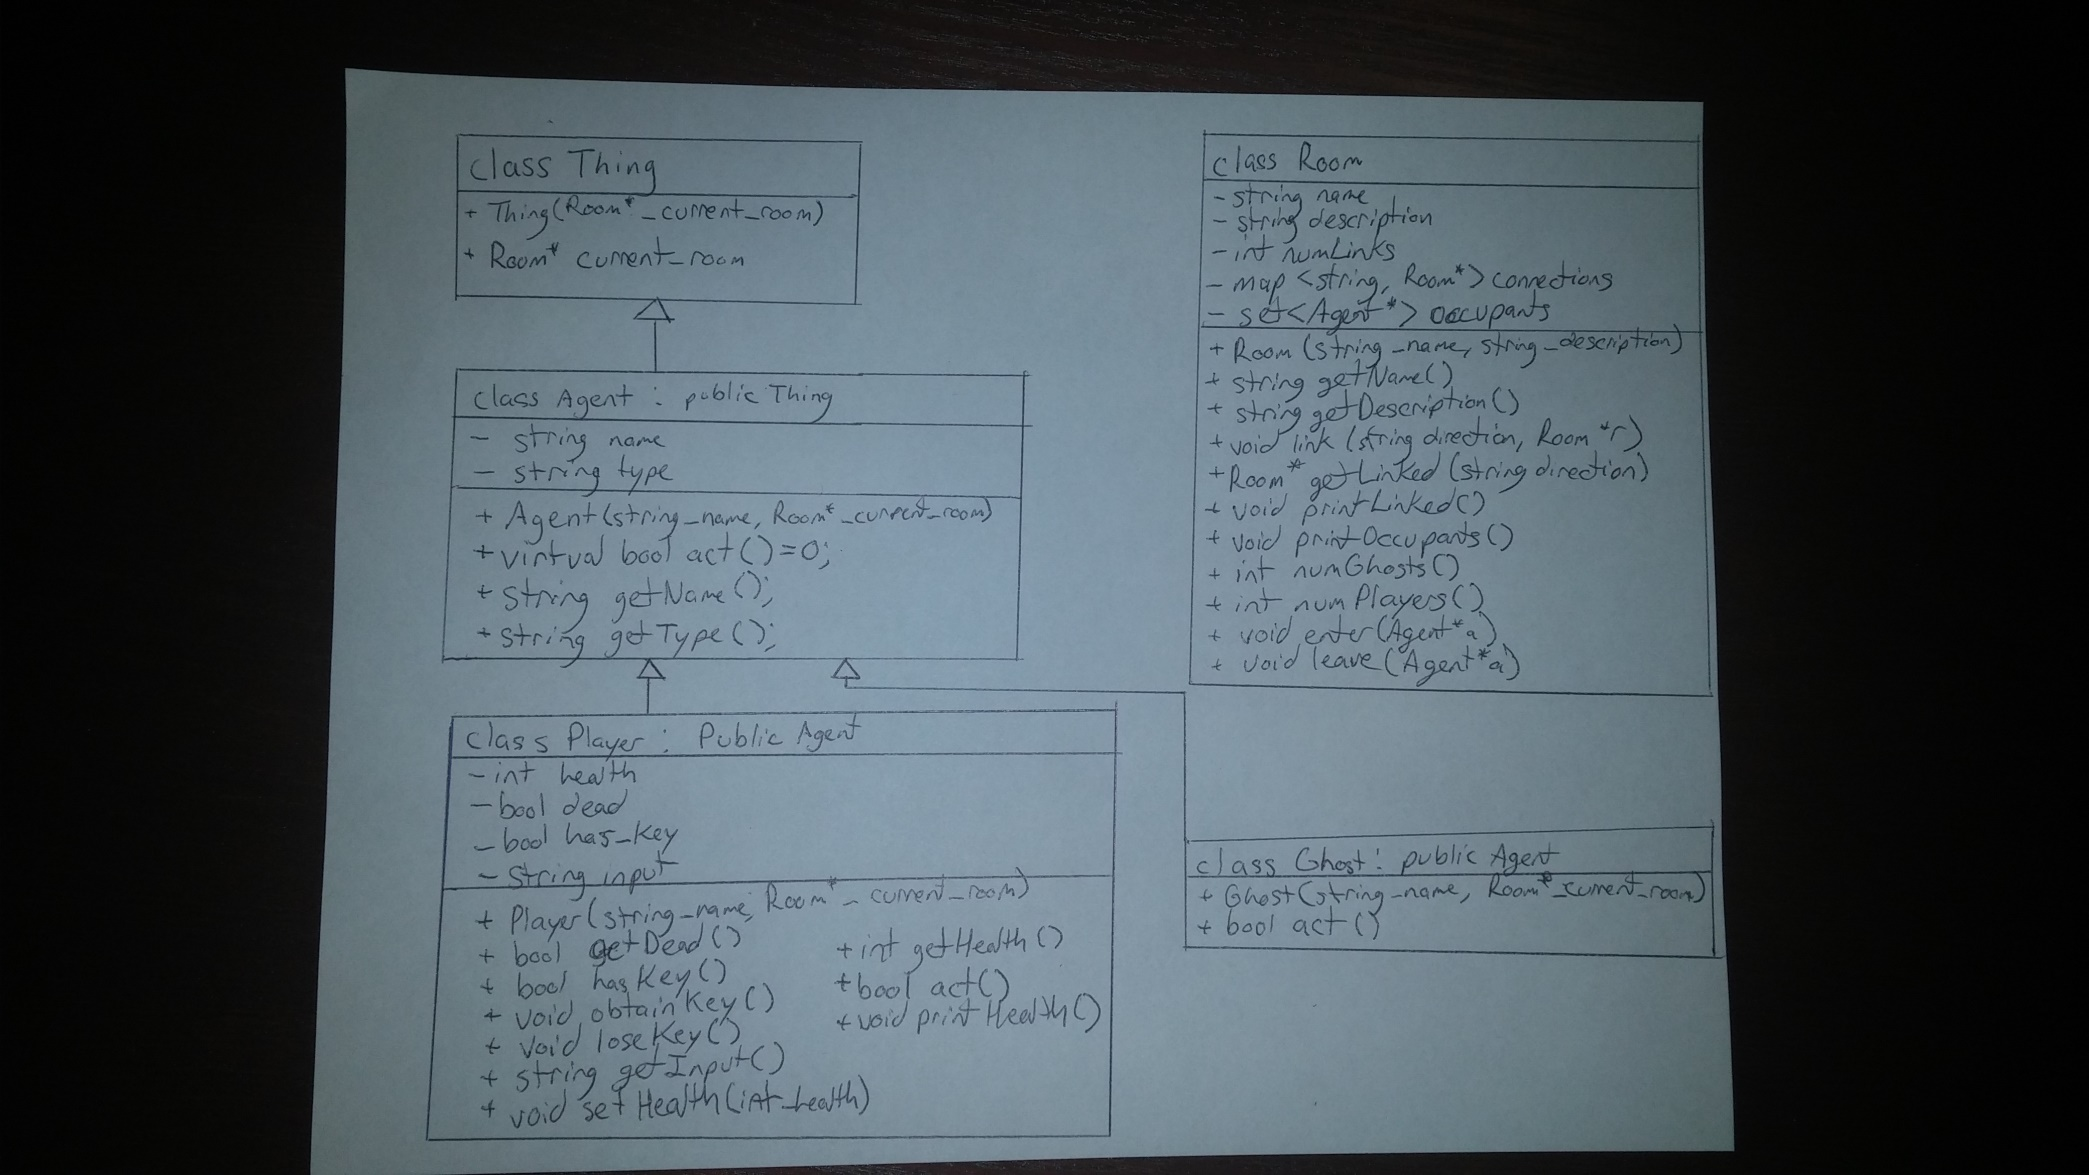 class Thing
+ Thing(Room* _current_room)
+ Room* current_room
class Agent : public Thing
- string name
- string type
+ Agent(string _name, Room* _current_room)
+ virtual bool act()=0;
+ string getName();
+ string getType();
class Player : Public Agent
- int health
- bool dead
- bool has_key
- string input
+ Player(string _name, Room* _current_room)
+ bool getDead()
+ bool hasKey()
+ void obtainKey()
+ void loseKey()
+ string getInput()
+ void setHealth(int _health)
+ int getHealth()
+ bool act()
+ void printHealth()
class Room
- string name
- string description
- int numLinks
- map <string, Room*> connections
- set<Agent*> occupants
+ Room (string _name, string _description)
+ string getName()
+ string getDescription()
+ void link (string direction, Room *r)
+ Room* getLinked (string direction)
+ void printLinked()
+ void printOccupants()
+ int numGhosts()
+ int numPlayers()
+ void enter(Agent*a)
+ void leave(Agent*a)
class Ghost : public Agent
+ Ghost(string _name, Room* _current_room)
+ bool act()